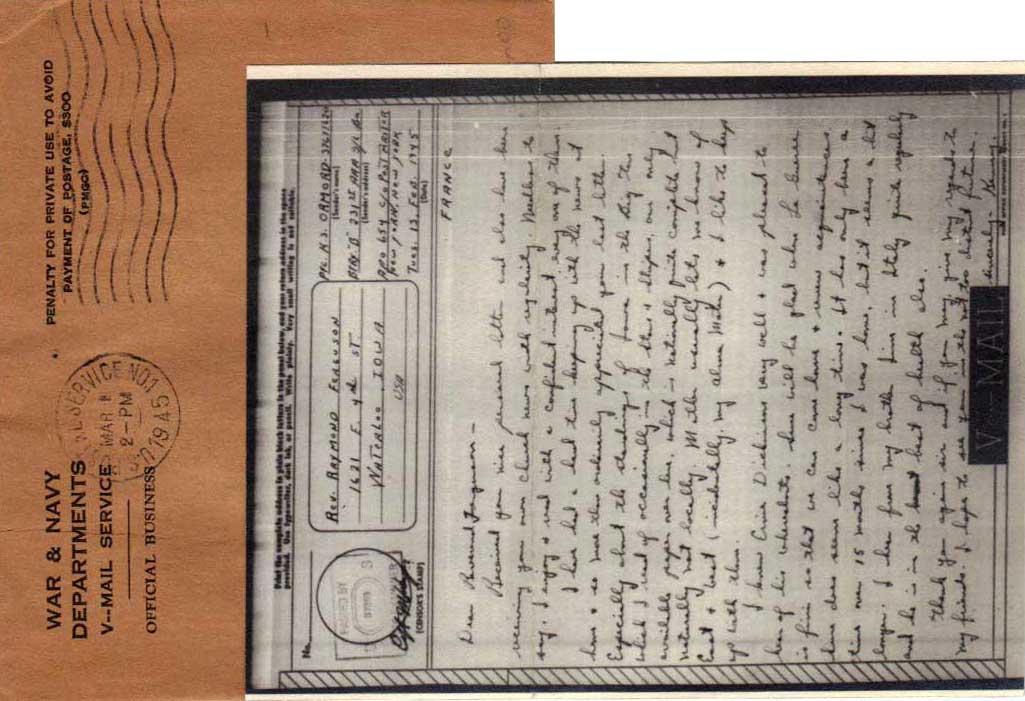 WAR & NAVY
DEPARTMENTS
V--MAIL SERVICE
OFFICIAL BUSINESS
PENALTY FOR PRIVATE USE TO AVOID
PAYMENT OF POSTAGE, $300
(PMGC)
SERVICE NO.1
MAR 1
2-PM
1945
Print the complete address in plain block letters in the panel below, and your return address in the space
provided. Use typewriter, dark ink, or pencil. Write plainly. Very small writing is not suitable.
No.
(CENSOR'S STAMP)
REV. RAYMOND FERGUSON
1631 E 4th ST
WATERLOO IOWA
USA
PFC H.S. ORMORD
(Sender's name)
BTRY "B" 231st ARM F/A Bn
(Sender's address)
APO 654 c/o POSTMASTER
NEW YORK, NEW YORK
TUES. 13. FEB. 1945
(Date)
FRANCE
Dear Reverend Ferguson—
Received your nice personal letter and also have been
receiving your own church news with regularity. Needless to
say, I enjoy & read with a confident interest every one of them.
I have had a hard time keeping up with the news at
home & so was thus ordinarily appreciated your last letter.
Especially about the standings of favor in the big ten
which I read of occasionally in the stars & stripes, our only
available paper over here, which is naturally quite complete but
naturally not locally. Mother usually lets me know of
East & West (incidentally, my alma mater) & I like to keep
up with them.
I know Ernie Dickinson very well & was pleased to
hear of his whereabouts. Love will be glad when he hears
is fine so that we can come home & renew acquaintances.
here does seem like a long time. It has only been a
time over 15 months since I was home, but it seems a lot
longer. I hear from my brother Jim in Italy quite regularly
and he is in the best of health also.
Thank you again sir and if you may, give my regards to
my friends. I hope to see you in the not too distant future.
Sincerely,
V···—MAIL